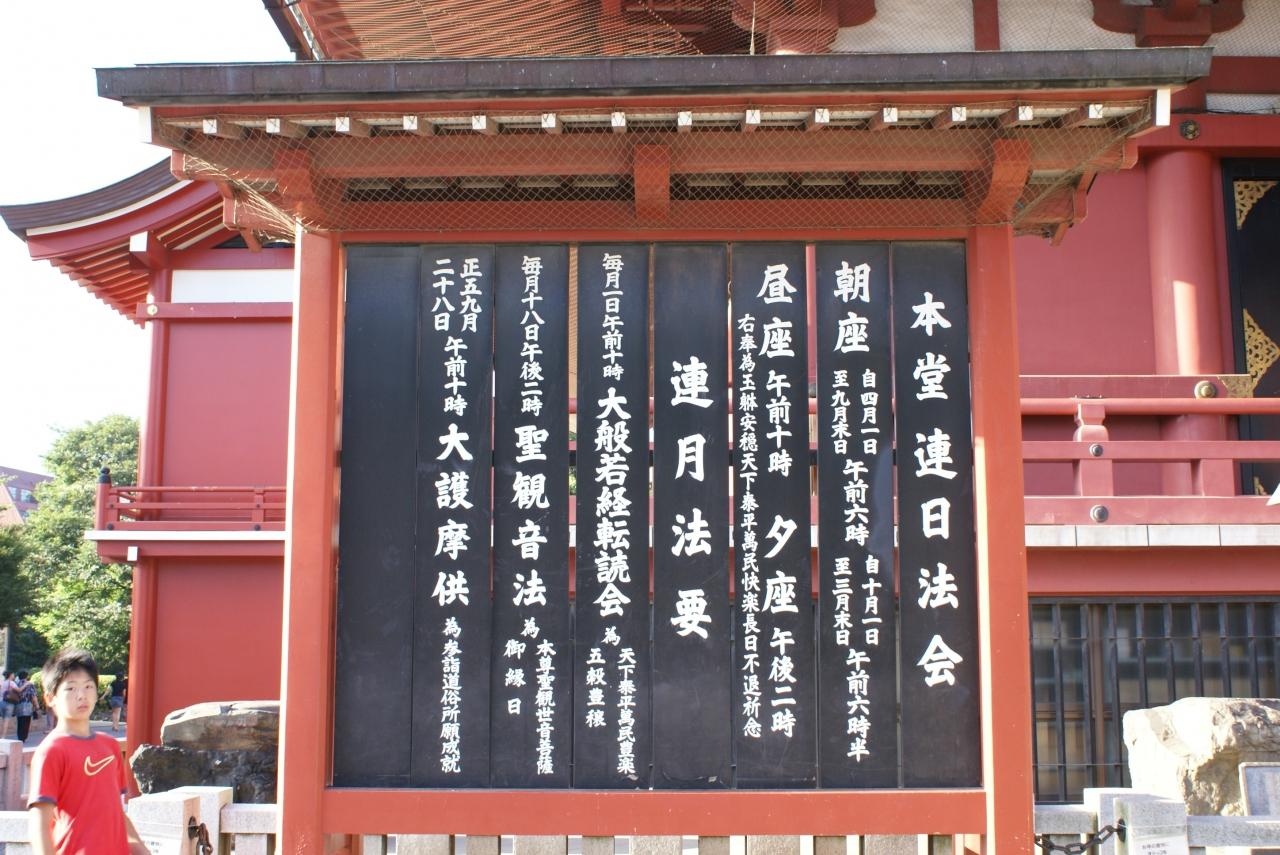 本堂連日法会
朝座
自四月一日
至九月末日
午前六時
自十月一日
至三月末日
午前六時半
昼座 午前十時 夕座 午後二時
右奉為玉躰安穏天下泰平萬民快楽長日不退祈念
連月法要
毎月一日午前十時 大般若経転読会 為
天下泰平萬民豊楽
五穀豊穣
毎月十八日午後二時 聖観音法 為
本尊聖観世音菩薩
御縁日
正五九月
二十八日
午前十時 大護摩供 為参詣道俗所願成就